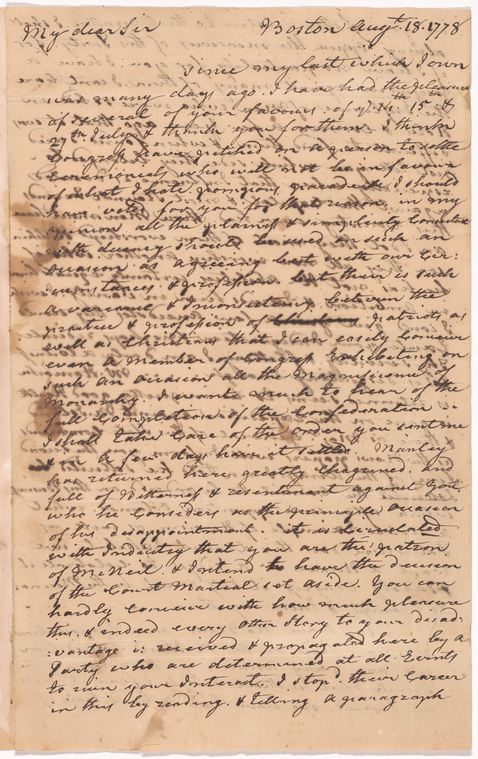 My dear Sir Boston Augt. 18. 1778
Since my last which I own
was many days ago I have had the pleasure
of several of your favours of ye. 14th 15th &
27th July & thank you for them. I think
Congress have pitched on a person to settle
Ceremonials who will not be in favour
of what I hate, pompous parade. I should
have voted for you for that reason. in my
opinion all the plainness & simplicity consistent
with decency should be used on such an
occasion as agreeing best with our Cir:
cumstances & profession. but there is such
a variance & Inconsistency between the
practice & profession of patriots as
well as Christians that I can easily conceive
even a Member of Congress Exhibiting on
such an occasion all the Magnificence of
Monarchy. I want much to hear of the
full Completion of the Confederation.
I shall take Care of the order you sent me
& in a few days have it settled. Manley
has returned here greatly Chagrined. and
full of Bitterness & resentment against you,
who he considers as the principle occasion
of his disappointment. it is circulated
with Industry that you are the patron
of McNeil. & Intend to have the decision
of the Court Martial set aside. You can
hardly conceive with how much pleasure
this, & indeed every other Story to your disad:
:vantage is received & propagated here by a
Party who are determined at all Events
to ruin your Interest. I stop'd their Career
in this by reading, & telling a paragraph